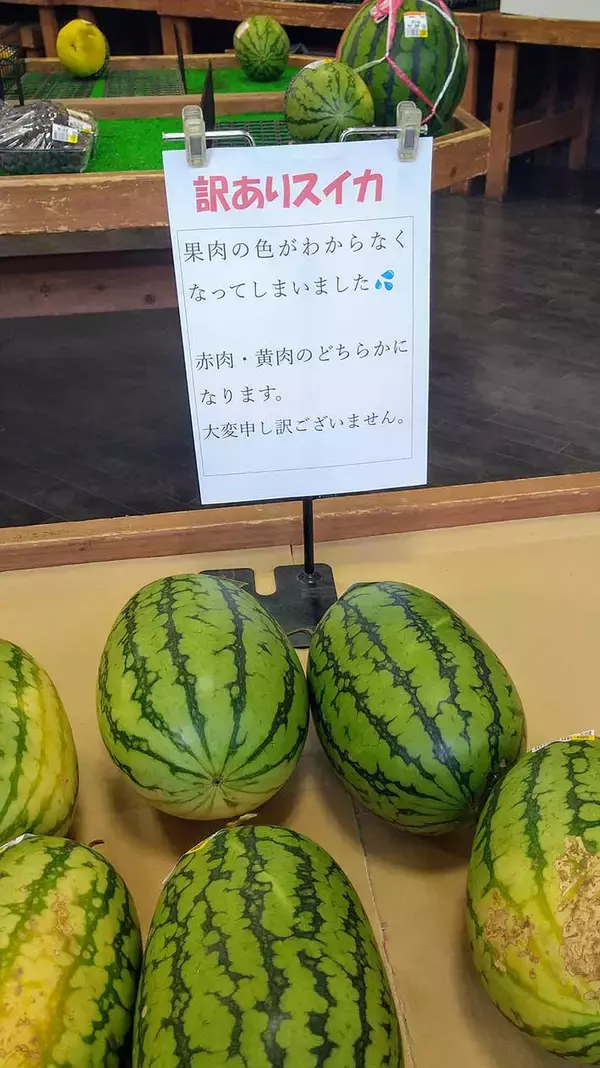 訳ありスイカ
果肉の色がわからなく
なってしまいました💦
赤肉・黄肉のどちらかに
なります。
大変申し訳ございません。